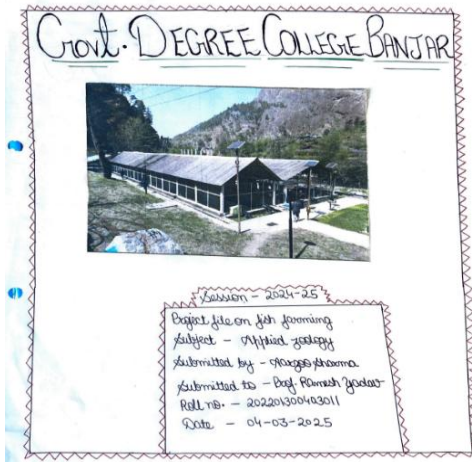 Govt. DEGREE COLLEGE BANJAR
Session - 2024-25
Project file on fish farming
Subject - Applied zoology
Submitted by - Aarzoo Sharma
Submitted to - Prof. Ramesh Yadav
Roll no. - 202201300403011
Date - 04-03-2025